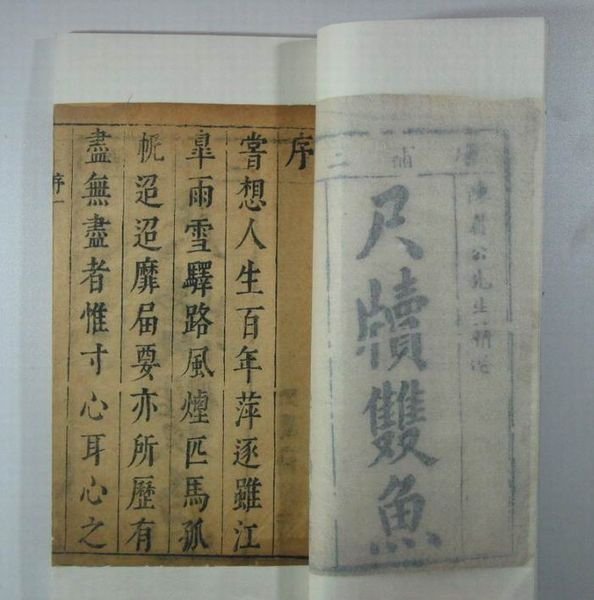 陳眉公先生
尺牘雙魚
序
嘗想人生百年萍逐雖江
皐雨雪驛路風煙匹馬孤
帆迢迢靡屆要亦所歷有
盡無盡者惟寸心耳心之
序一